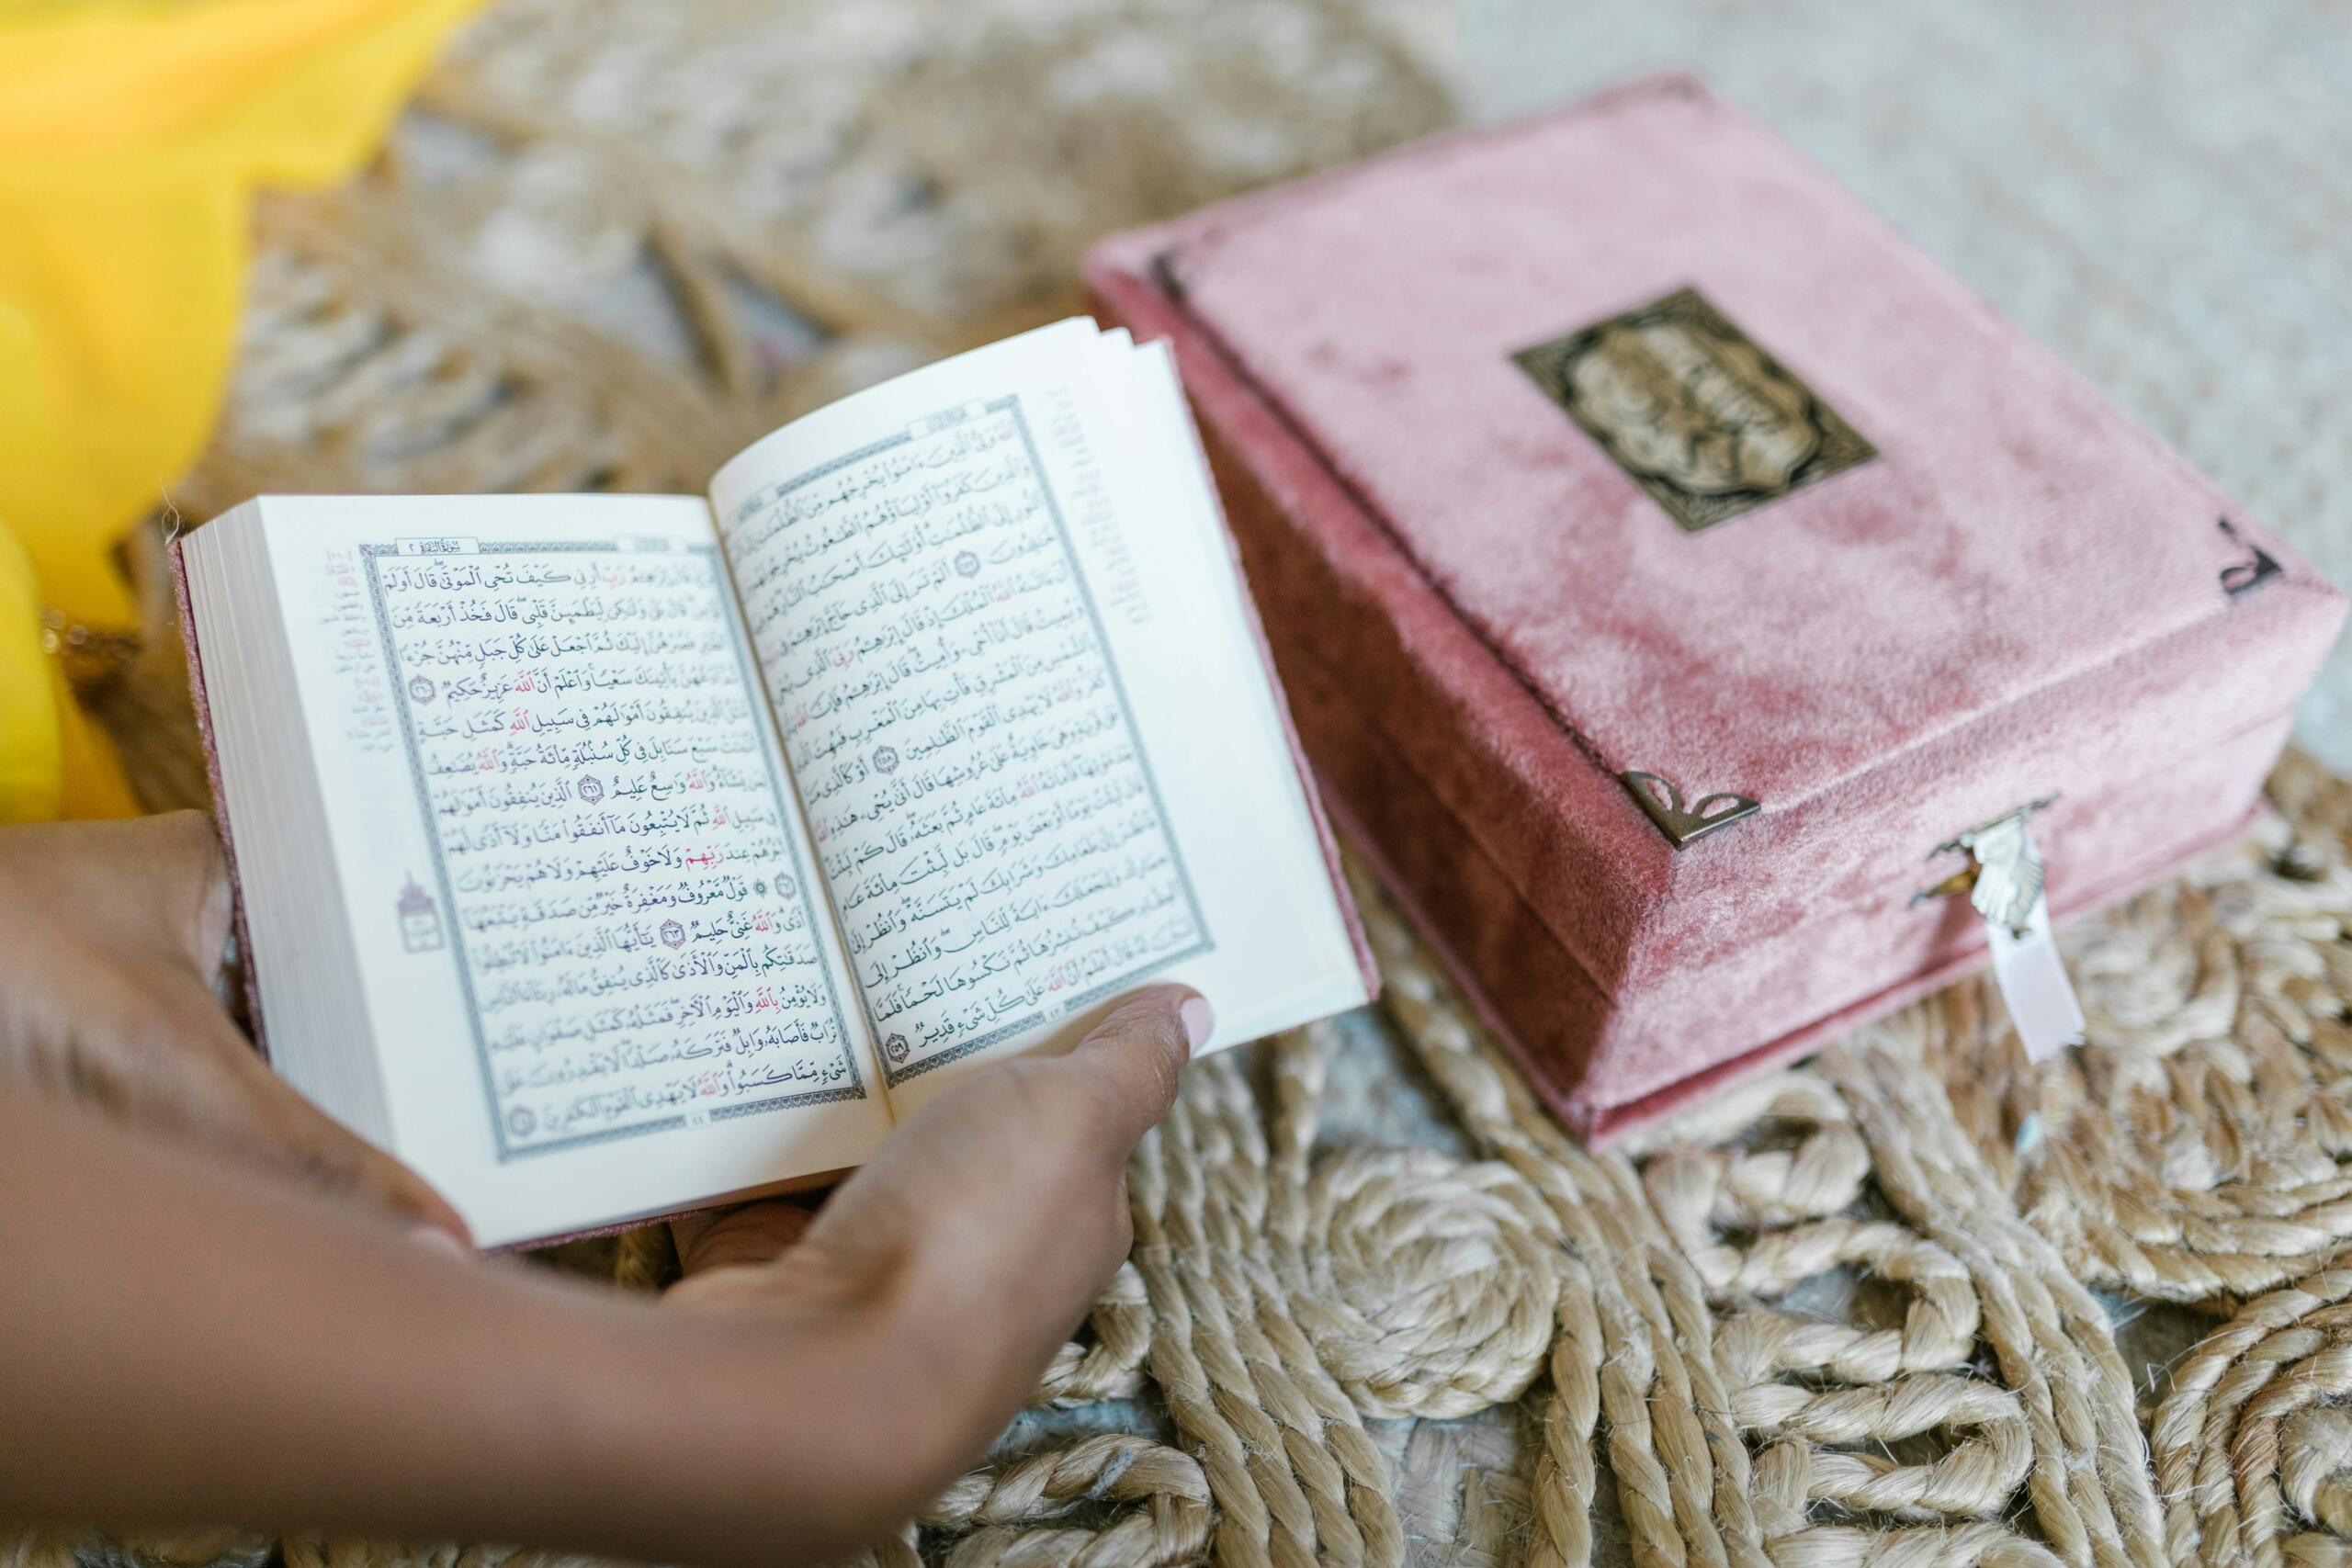 ٱللَّهُ وَلِىُّ ٱلَّذِينَ ءَامَنُوا۟ يُخْرِجُهُم مِّنَ ٱلظُّلُمَٰتِ
وَٱلَّذِينَ كَفَرُوٓا۟ أَوْلِيَآؤُهُمُ ٱلطَّٰغُوتُ يُخْرِجُونَهُم
ٱلنُّورِ إِلَى ٱلظُّلُمَٰتِ أُو۟لَٰٓئِكَ أَصْحَٰبُ ٱلنَّارِ هُمْ فِيهَا
خَٰلِدُونَ ٢٥٧ أَلَمْ تَرَ إِلَى ٱلَّذِى حَآجَّ إِبْرَٰهِـۧمَ فِى
أَنْ ءَاتَىٰهُ ٱللَّهُ ٱلْمُلْكَ إِذْ قَالَ إِبْرَٰهِـۧمُ رَبِّىَ ٱلَّذِى يُحْىِۦ
وَيُمِيتُ قَالَ أَنَا۠ أُحْىِۦ وَأُمِيتُ قَالَ إِبْرَٰهِـۧمُ فَإِنَّ ٱللَّهَ
ٱلشَّمْسِ مِنَ ٱلْمَشْرِقِ فَأْتِ بِهَا مِنَ ٱلْمَغْرِبِ فَبُهِتَ ٱلَّذِى
كَفَرَ وَٱللَّهُ لَا يَهْدِى ٱلْقَوْمَ ٱلظَّٰلِمِينَ ٢٥٨ أَوْ كَٱلَّذِى مَرَّ
عَلَىٰ قَرْيَةٍ وَهِىَ خَاوِيَةٌ عَلَىٰ عُرُوشِهَا قَالَ أَنَّىٰ يُحْىِۦ هَٰذِهِ ٱللَّهُ
بَعْدَ مَوْتِهَا فَأَمَاتَهُ ٱللَّهُ مِا۟ئَةَ عَامٍ ثُمَّ بَعَثَهُۥ قَالَ كَمْ لَبِثْتَ
قَالَ لَبِثْتُ يَوْمًا أَوْ بَعْضَ يَوْمٍ قَالَ بَل لَّبِثْتَ مِا۟ئَةَ عَامٍ
فَٱنظُرْ إِلَىٰ طَعَامِكَ وَشَرَابِكَ لَمْ يَتَسَنَّهْ وَٱنظُرْ إِلَىٰ
حِمَارِكَ وَلِنَجْعَلَكَ ءَايَةً لِّلنَّاسِ وَٱنظُرْ إِلَى
ٱلْعِظَامِ كَيْفَ نُنشِزُهَا ثُمَّ نَكْسُوهَا لَحْمًا فَلَمَّا
تَبَيَّنَ لَهُۥ قَالَ أَعْلَمُ أَنَّ ٱللَّهَ عَلَىٰ كُلِّ شَىْءٍ قَدِيرٌ ٢٥٩
٤٣
سُورَةُ البَقَرَةِ ٢
إِبْرَٰهِـۧمُ رَبِّ أَرِنِى كَيْفَ تُحْىِ ٱلْمَوْتَىٰ قَالَ أَوَلَمْ
قَالَ بَلَىٰ وَلَٰكِن لِّيَطْمَئِنَّ قَلْبِى قَالَ فَخُذْ أَرْبَعَةً مِّنَ
ٱلطَّيْرِ فَصُرْهُنَّ إِلَيْكَ ثُمَّ ٱجْعَلْ عَلَىٰ كُلِّ جَبَلٍ مِّنْهُنَّ جُزْءًا
ثُمَّ ٱدْعُهُنَّ يَأْتِينَكَ سَعْيًا وَٱعْلَمْ أَنَّ ٱللَّهَ عَزِيزٌ حَكِيمٌ ٢٦٠
مَّثَلُ ٱلَّذِينَ يُنفِقُونَ أَمْوَٰلَهُمْ فِى سَبِيلِ ٱللَّهِ كَمَثَلِ حَبَّةٍ
أَنۢبَتَتْ سَبْعَ سَنَابِلَ فِى كُلِّ سُنۢبُلَةٍ مِّا۟ئَةُ حَبَّةٍ وَٱللَّهُ يُضَٰعِفُ
لِمَن يَشَآءُ وَٱللَّهُ وَٰسِعٌ عَلِيمٌ ٢٦١ ٱلَّذِينَ يُنفِقُونَ أَمْوَٰلَهُمْ
فِى سَبِيلِ ٱللَّهِ ثُمَّ لَا يُتْبِعُونَ مَآ أَنفَقُوا۟ مَنًّا وَلَآ أَذًى لَّهُمْ
أَجْرُهُمْ عِندَ رَبِّهِمْ وَلَا خَوْفٌ عَلَيْهِمْ وَلَا هُمْ يَحْزَنُونَ
٢٦٢ ۞ قَوْلٌ مَّعْرُوفٌ وَمَغْفِرَةٌ خَيْرٌ مِّن صَدَقَةٍ يَتْبَعُهَآ
أَذًى وَٱللَّهُ غَنِىٌّ حَلِيمٌ ٢٦٣ يَٰٓأَيُّهَا ٱلَّذِينَ ءَامَنُوا۟ لَا تُبْطِلُوا۟
صَدَقَٰتِكُم بِٱلْمَنِّ وَٱلْأَذَىٰ كَٱلَّذِى يُنفِقُ مَالَهُۥ رِئَآءَ ٱلنَّاسِ
وَلَا يُؤْمِنُ بِٱللَّهِ وَٱلْيَوْمِ ٱلْءَاخِرِ فَمَثَلُهُۥ كَمَثَلِ صَفْوَانٍ عَلَيْهِ
تُرَابٌ فَأَصَابَهُۥ وَابِلٌ فَتَرَكَهُۥ صَلْدًا لَّا يَقْدِرُونَ عَلَىٰ
شَىْءٍ مِّمَّا كَسَبُوا۟ وَٱللَّهُ لَا يَهْدِى ٱلْقَوْمَ ٱلْكَٰفِرِينَ ٢٦٤
٤٤